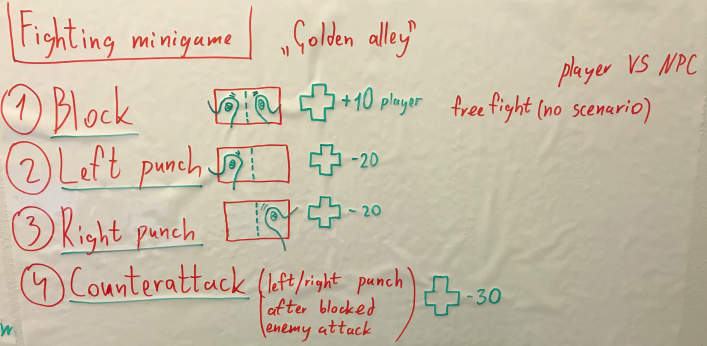 Fighting minigame „Golden alley"
player VS NPC
① Block +10 player free fight (no scenario)
② Left punch -20
③ Right punch -20
④ Counterattack (left/right punch
after blocked
enemy attack) -30